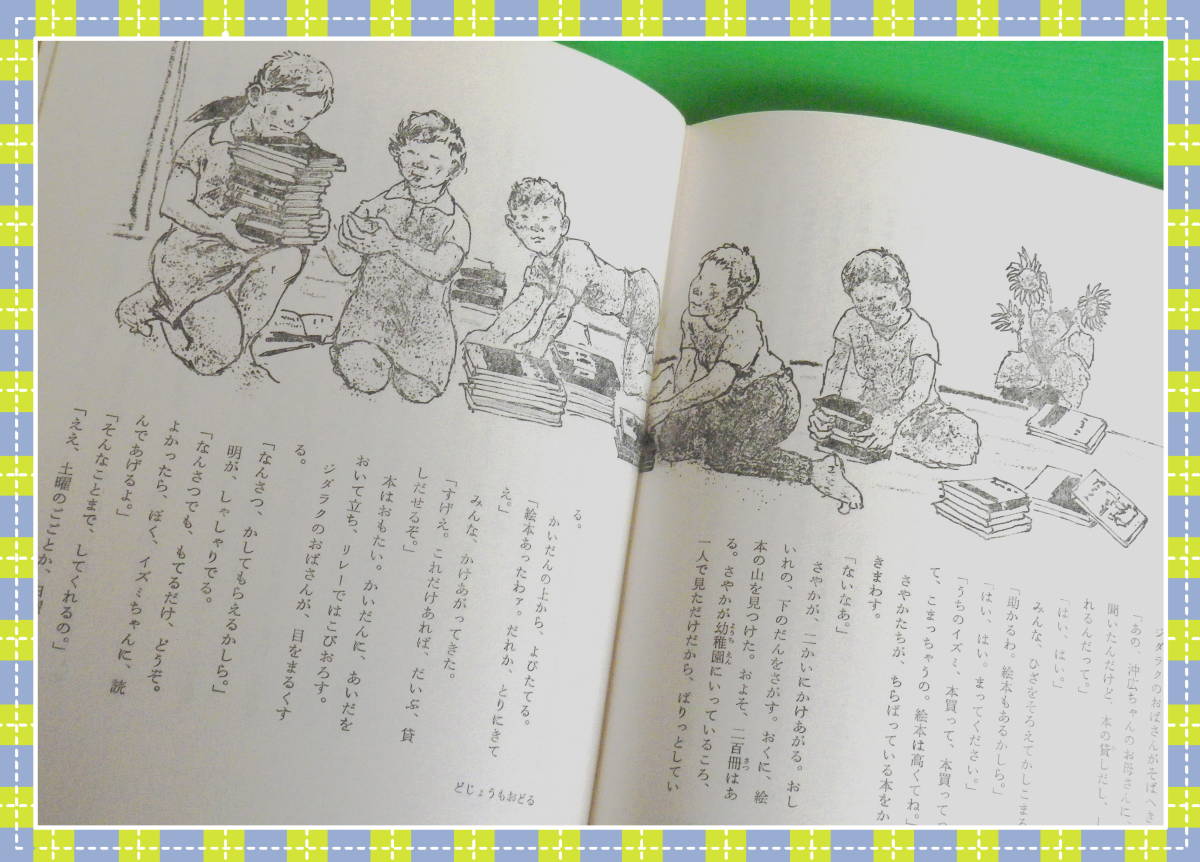 ジダラクのおばさんがそばへき
「あの、沖山ちゃんのお母さんに、
聞いたんだけど、本の貸しだし、
れるんだって。」
「はい、はい。」
みんな、ひざをそろえてかしこまる
「助かるわ。絵本もあるかしら。」
「はい、はい。まってください。」
「うちのイズミ、本買って、本買ってっ
て、こまっちゃうの。絵本は高くてね。」
さやかたちが、ちらばっている本をか
きまわす。
「ないなあ。」
さやかが、二かいにかけあがる。おし
いれの、下のだんをさがす。おくに、絵
本の山を見つけた。およそ、二百冊はあ
る。さやかが幼稚園にいっているころ、
一人で見ただけだから、ぱりっとしてい
る。
かいだんの上から、よびたてる。
「絵本あったわァ。だれか、とりにきて
え。」
みんな、かけあがってきた。
「すげえ。これだけあれば、だいぶ、貸
しだせるぞ。」
本はおもたい。かいだんに、あいだを
おいて立ち、リレーではこびおろす。
ジダラクのおばさんが、目をまるくす
る。
「なんさつ、かしてもらえるかしら。」
明が、しゃしゃりでる。
「なんさつでも、もてるだけ、どうぞ。
よかったら、ぼく、イズミちゃんに、読
んであげるよ。」
「そんなことまで、してくれるの。」
「ええ、土曜のごごとか、
どじょうもおどる